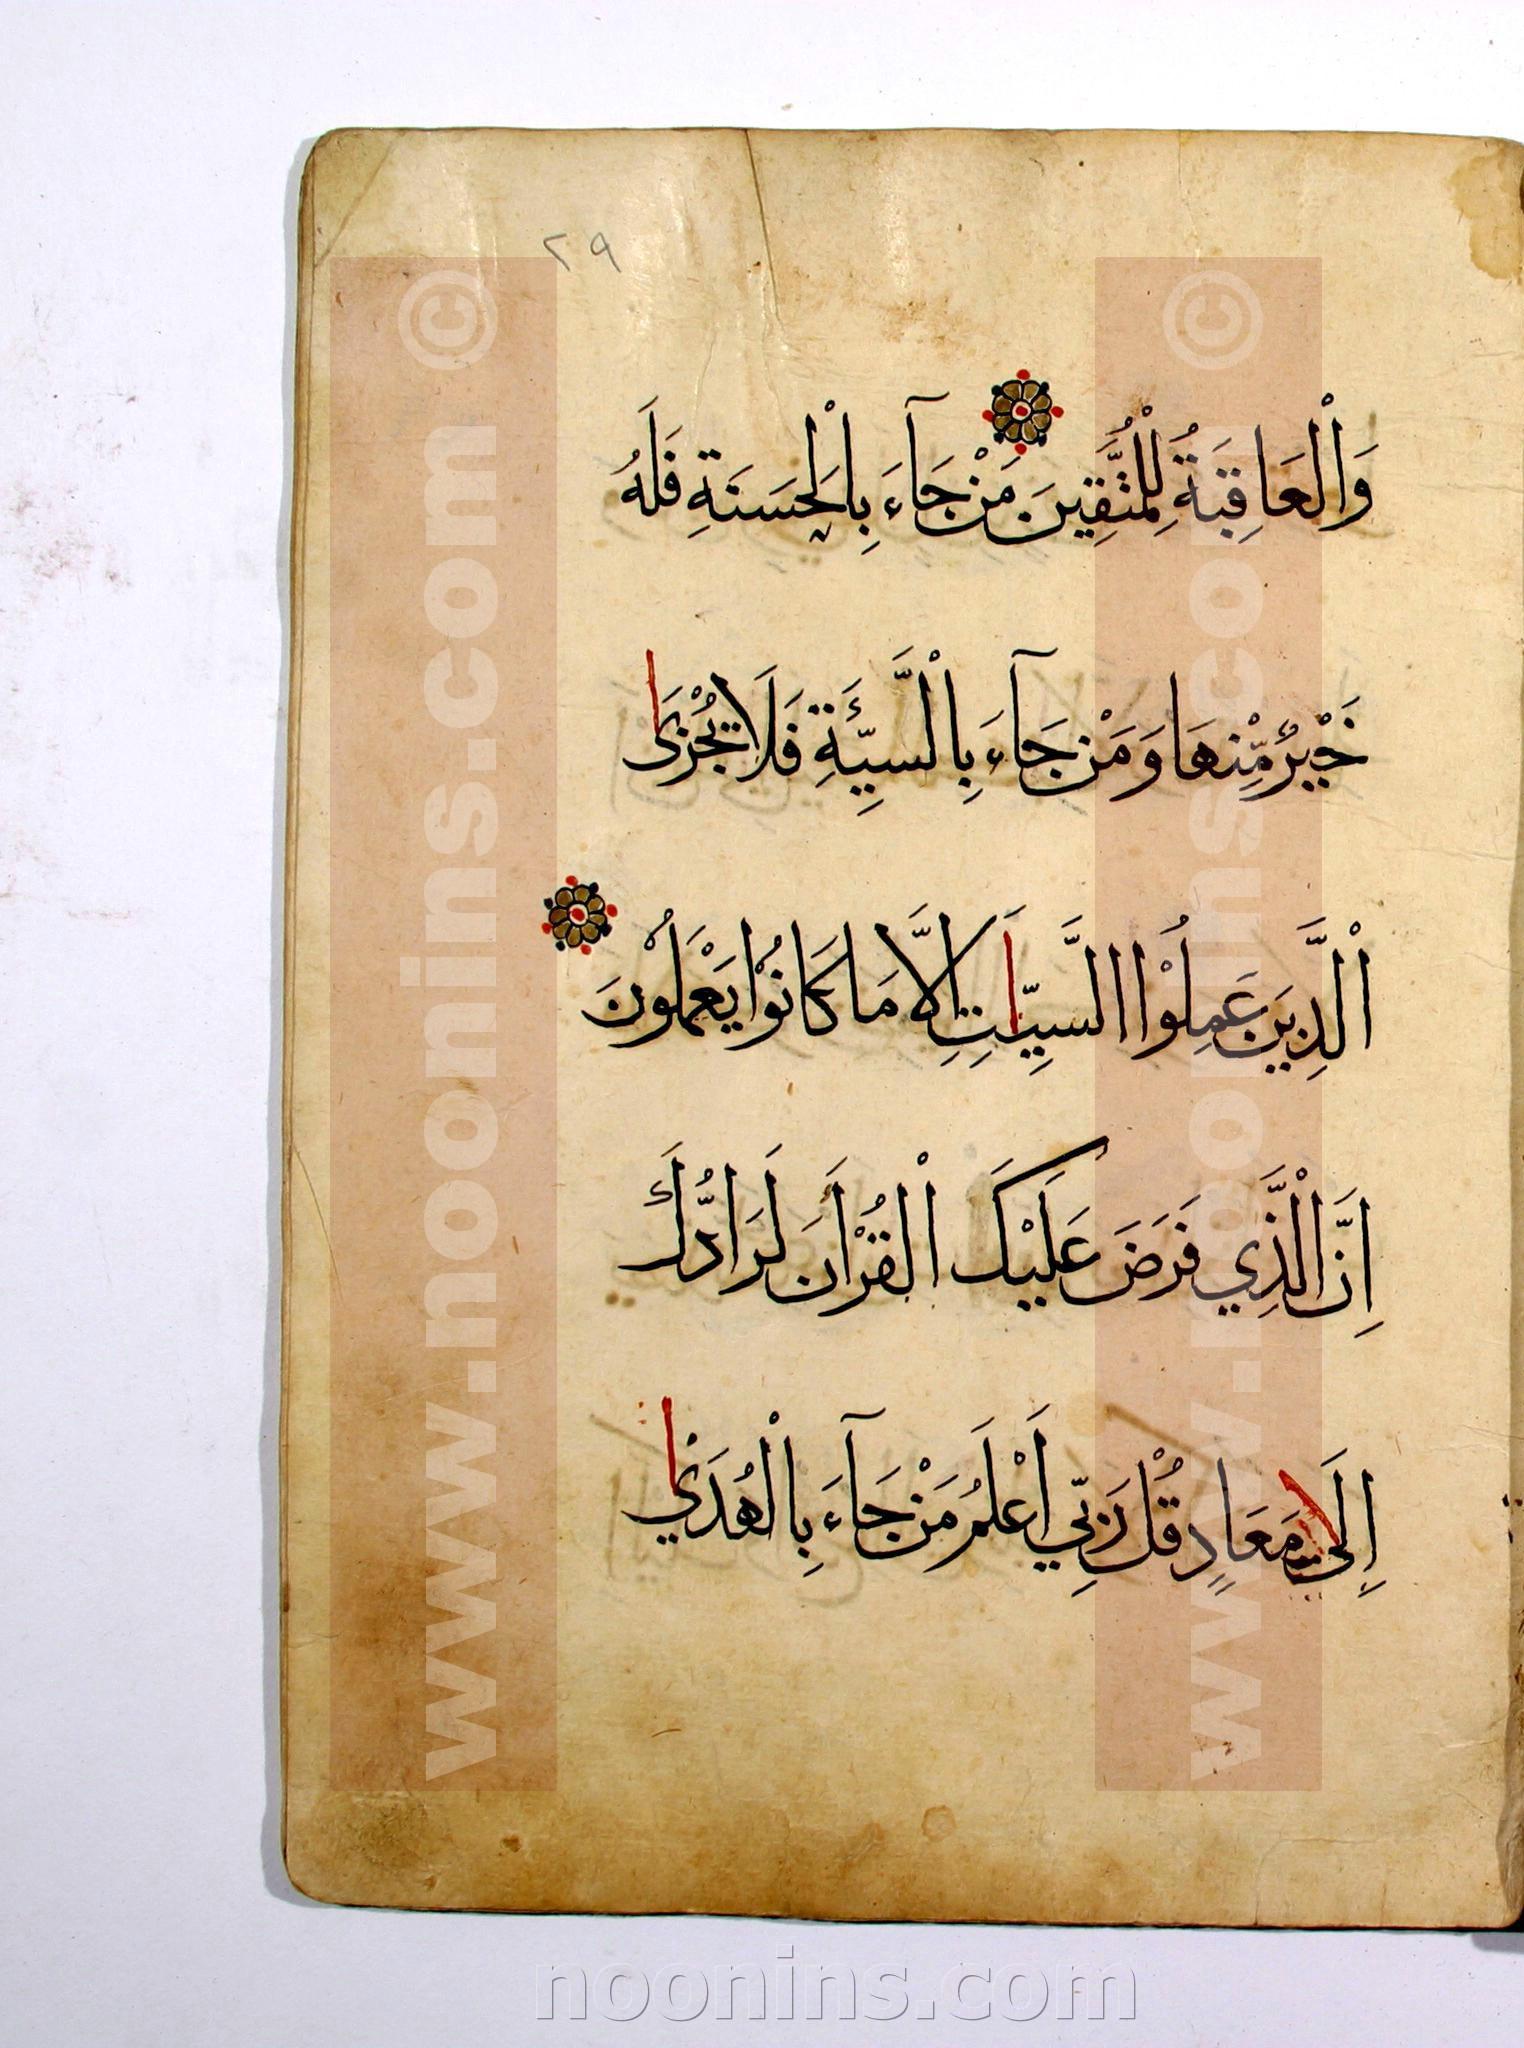 ٢٩
وَالْعَاقِبَةُ لِلْمُتَّقِينَ مَنْ جَآءَ بِالْحَسَنَةِ فَلَهُ
خَيْرٌ مِّنْهَا وَمَنْ جَآءَ بِالسَّيِّئَةِ فَلَا يُجْزَى
الَّذِينَ عَمِلُوْا السَّيِّاَتِ اِلَّا مَا كَانُوْا يَعْمَلُوْنَ
اِنَّ الَّذِي فَرَضَ عَلَيْكَ الْقُرْاَنَ لَرَادُّكَ
اِلَى مَعَادٍ قُلْ رَبِّي اَعْلَمُ مَنْ جَآءَ بِالْهُدَى
www.noonins.com ©
www.noonins.com ©
noonins.com